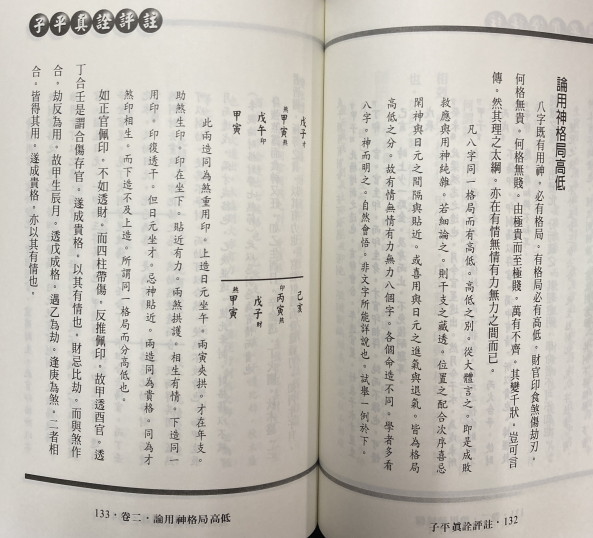 論用神格局高低
八字既有用神，必有格局，有格局必有高低。財官印食煞傷劫刃，
何格無貴。何格無賤。由極貴而至極賤。萬有不齊。其變千狀，豈可言
傳。然其理之大綱。亦在有情無情有力無力之間而已。
凡八字同一格局而有高低。高低之別。從大體言之。即是成敗
救應與用神純雜。若細論之。則干支之藏透。位置之配合次序喜忌
閑神與日元之間隔與貼近。或喜用與日元之進氣與退氣。皆為格局
高低之分。故有情無情有力無力八個字。各個命造不同。學者多看
八字。神而明之。自然會悟。非文字所能詳說也。試舉一例於下。
子平真詮評註・132
子平真詮評註
戊子才
煞甲寅煞
戊午印
甲寅
己亥
印丙寅煞
戊子財
煞甲寅
此兩造同為煞重用印。上造日元坐午。兩寅夾拱。才在年支。
助煞生印。印在坐下。貼近有力。兩煞拱護。相生有情。下造同一
用印。印復透干。但日元坐才。忌神貼近。兩造同為貴格。同為才
煞印相生。而下造不及上造。所謂同一格局而分高低也。
如正官佩印。不如透財。而四柱帶傷，反推佩印。故甲透酉官。透
丁合壬是謂合傷存官。遂成貴格，以其有情也，財忌比劫。而與煞作
合，劫反為用。故甲生辰月。透戊成格。遇乙為劫。逢庚為煞。二者相
合。皆得其用。遂成貴格，亦以其有情也，
133・卷二・論用神格局高低